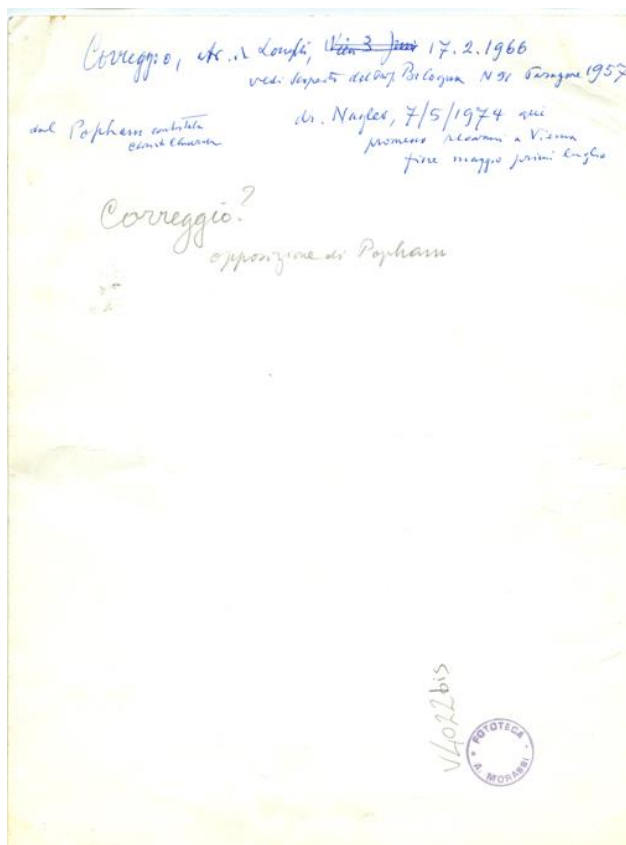 Correggio, Longhi, 17.2.1966
vedi scoperta Bologna N 91 Paragone 1957
dal Popham contestata
dr. Nagler, 7/5/1974 qui
a Vienna
fine maggio primi luglio
Correggio?
opposizione di Popham
V4022bis
FOTOTECA
A. MORASSI